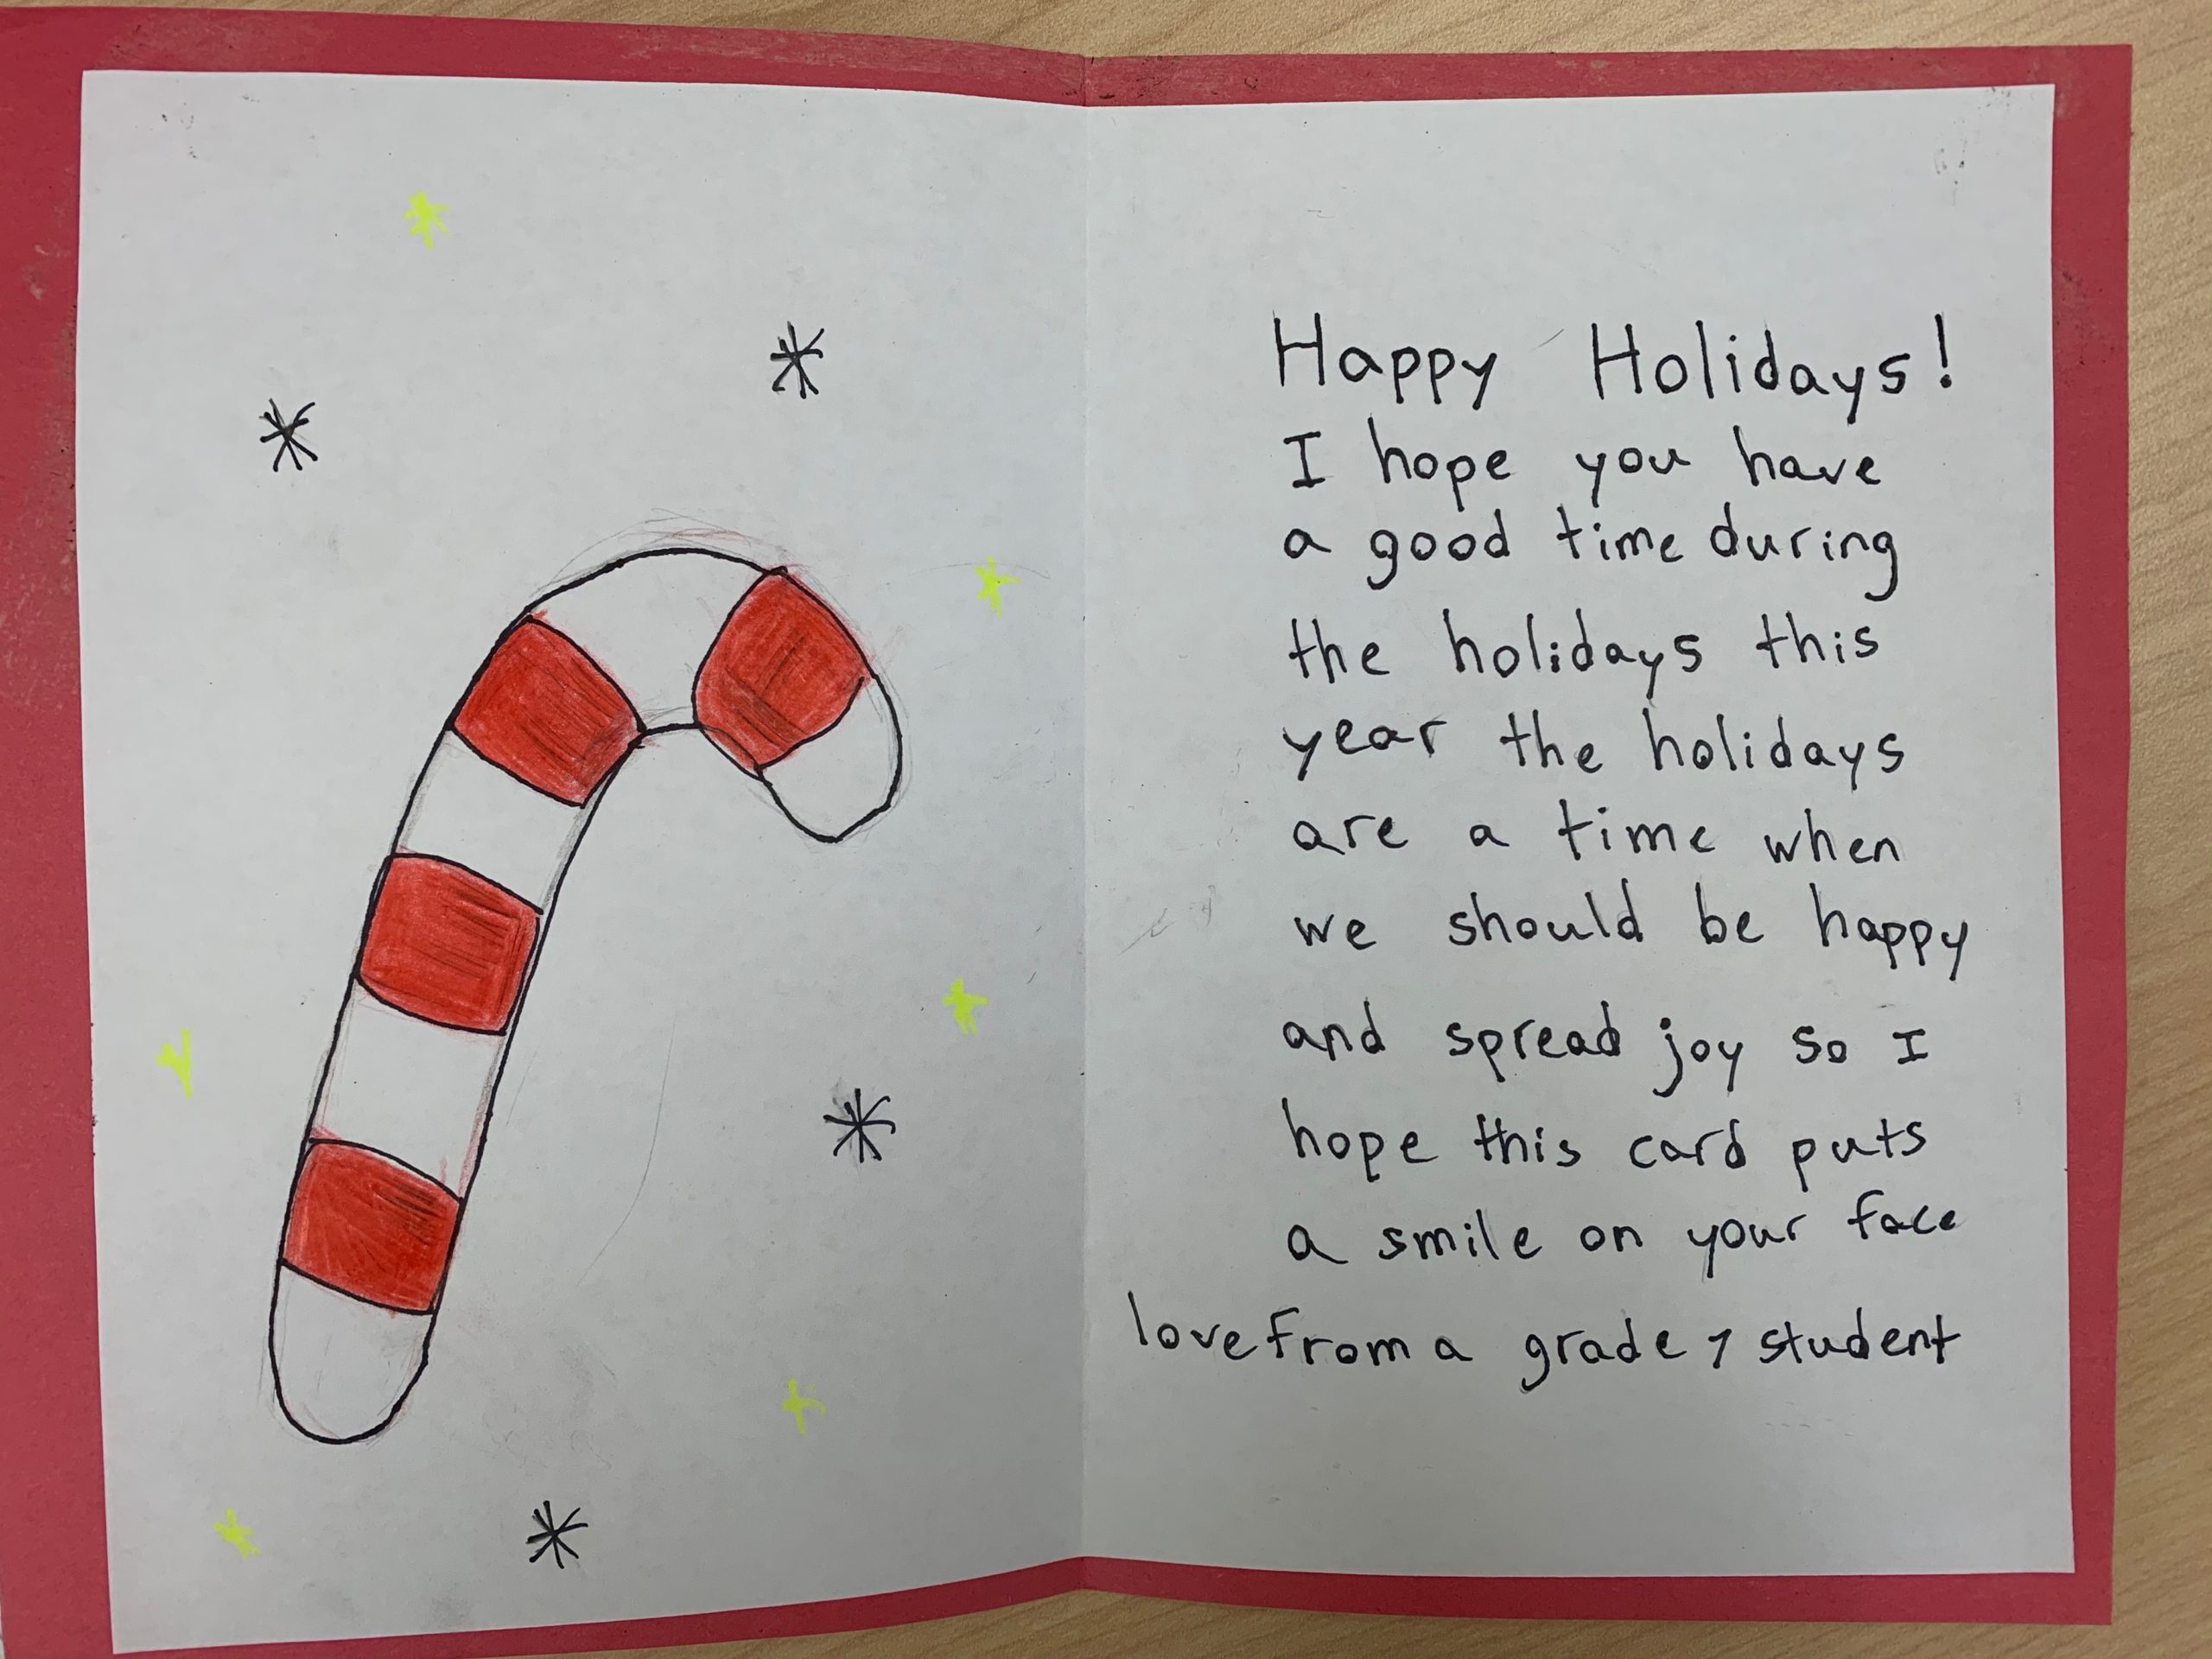 Happy Holidays!
I hope you have
a good time during
the holidays this
year the holidays
are a time when
we should be happy
and spread joy so I
hope this card puts
a smile on your face
love from a grade 7 student